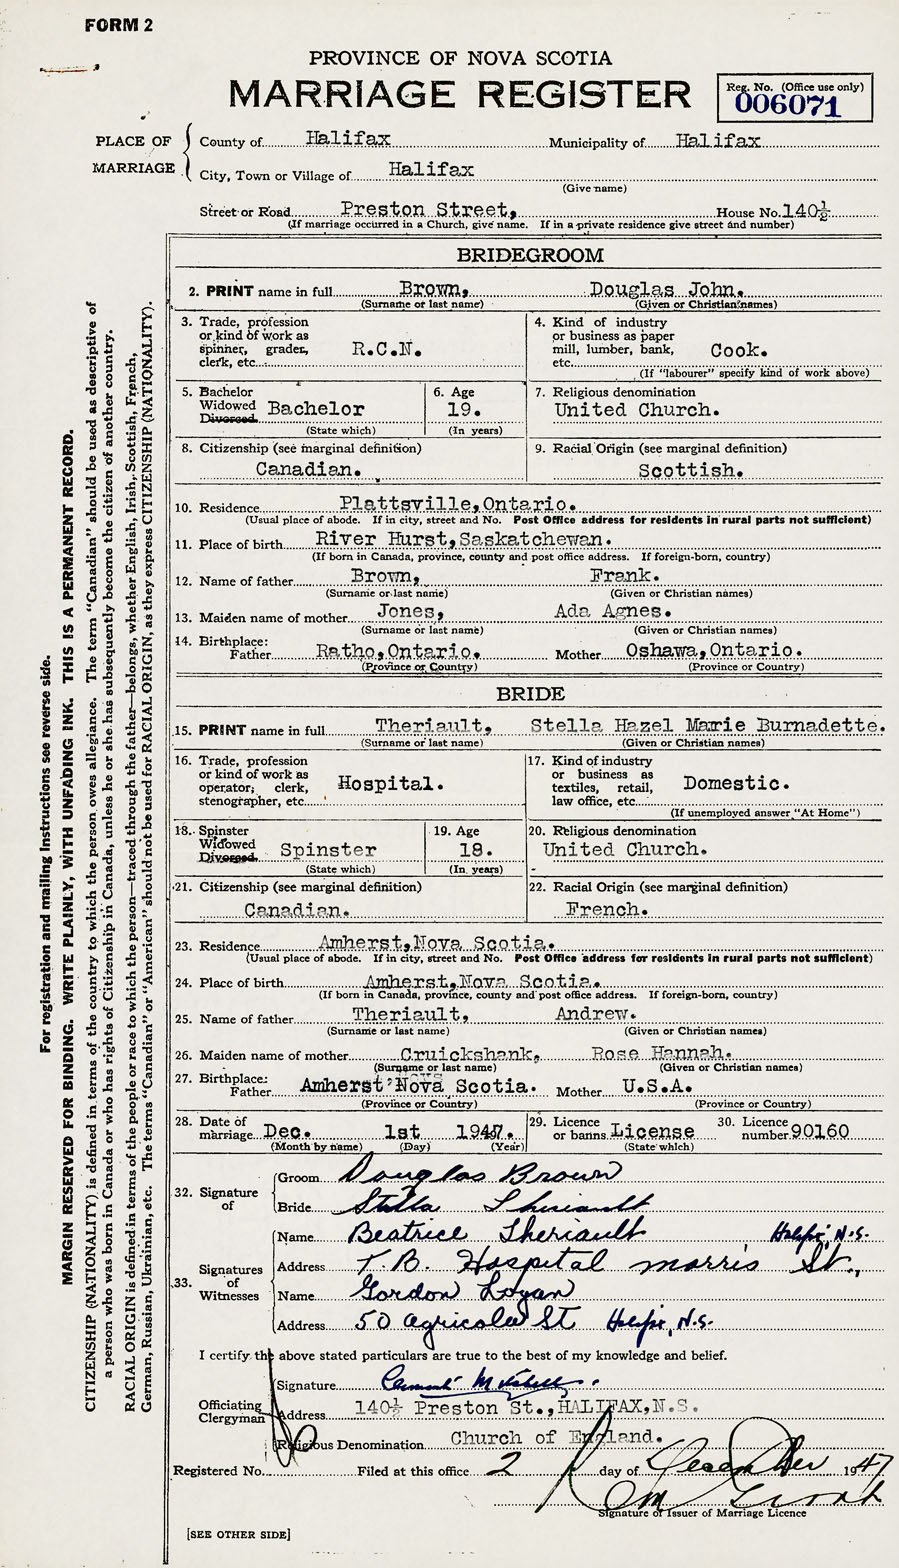 FORM 2
PROVINCE OF NOVA SCOTIA
MARRIAGE REGISTER
Reg. No. (Office use only)
006071
PLACE OF MARRIAGE
County of Halifax Municipality of Halifax
City, Town or Village of Halifax
(Give name)
Street or Road Preston Street, House No. 140½
(If marriage occurred in a Church, give name. If in a private residence give street and number)
BRIDEGROOM
2. PRINT name in full Brown, Douglas John.
(Surname or last name) (Given or Christian names)
3. Trade, profession or kind of work as spinner, grader, clerk, etc. R.C.N.
4. Kind of industry or business as paper mill, lumber, bank, etc. Cook.
(If "labourer" specify kind of work above)
5. Bachelor Widowed Divorced Bachelor
(State which)
6. Age 19.
(In years)
7. Religious denomination
United Church.
8. Citizenship (see marginal definition)
Canadian.
9. Racial Origin (see marginal definition)
Scottish.
10. Residence Plattsville, Ontario.
(Usual place of abode. If in city, street and No. Post Office address for residents in rural parts not sufficient)
11. Place of birth River Hurst, Saskatchewan.
(If born in Canada, province, county and post office address. If foreign-born, country)
12. Name of father Brown, Frank.
(Surname or last name) (Given or Christian names)
13. Maiden name of mother Jones, Ada Agnes.
(Surname or last name) (Given or Christian names)
14. Birthplace: Father Ratho, Ontario. Mother Oshawa, Ontario.
(Province or Country) (Province or Country)
BRIDE
15. PRINT name in full Theriault, Stella Hazel Marie Burnadette.
(Surname or last name) (Given or Christian names)
16. Trade, profession or kind of work as operator; clerk, stenographer, etc. Hospital.
17. Kind of industry or business as textiles, retail, law office, etc. Domestic.
(If unemployed answer "At Home")
18. Spinster Widowed Divorced Spinster
(State which)
19. Age 18.
(In years)
20. Religious denomination
United Church.
21. Citizenship (see marginal definition)
Canadian.
22. Racial Origin (see marginal definition)
French.
23. Residence Amherst, Nova Scotia.
(Usual place of abode. If in city, street and No. Post Office address for residents in rural parts not sufficient)
24. Place of birth Amherst, Nova Scotia.
(If born in Canada, province, county and post office address. If foreign-born, country)
25. Name of father Theriault, Andrew.
(Surname or last name) (Given or Christian names)
26. Maiden name of mother Cruickshank, Rose Hannah.
(Surname or last name) (Given or Christian names)
27. Birthplace: Father Amherst Nova Scotia. Mother U.S.A.
(Province or Country) (Province or Country)
28. Date of marriage Dec. 1st 1947.
(Month by name) (Day) (Year)
29. Licence or banns License
(State which)
30. Licence number 90160
32. Signature of
Groom Douglas Brown
Bride Stella Theriault
33. Signatures of Witnesses
Name Beatrice Theriault Halifx, N.S.
Address T.B. Hospital Morris St.,
Name Gordon Logan
Address 50 Agricola St Halifx, N.S.
I certify the above stated particulars are true to the best of my knowledge and belief.
Officiating Clergyman
Signature
Address 140½ Preston St., HALIFAX, N.S.
Religious Denomination Church of England.
Registered No. Filed at this office 2 day of December 1947
Signature of Issuer of Marriage Licence
[SEE OTHER SIDE]
For registration and mailing instructions see reverse side.
MARGIN RESERVED FOR BINDING. WRITE PLAINLY, WITH UNFADING INK. THIS IS A PERMANENT RECORD.
CITIZENSHIP (NATIONALITY) is defined in terms of the country to which the person owes allegiance. The term "Canadian" should be used as descriptive of
a person who was born in Canada or who has rights of Citizenship in Canada, unless he or she has subsequently become the citizen of another country.
RACIAL ORIGIN is defined in terms of the people or race to which the person—traced through the father—belongs, whether English, Irish, Scottish, French,
German, Russian, Ukrainian, etc. The terms "Canadian" or "American" should not be used for RACIAL ORIGIN, as they express CITIZENSHIP (NATIONALITY).